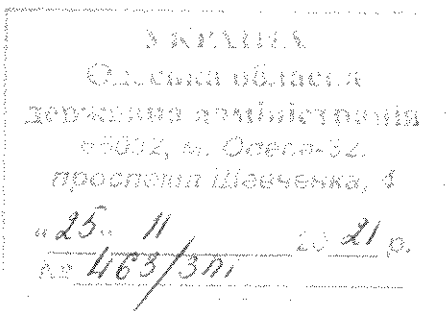 УКРАЇНА
Одеська обласна
державна адміністрація
65032, м. Одеса-32,
проспект Шевченка, 4
"25" 11 2021 р.
№ 463/3пі